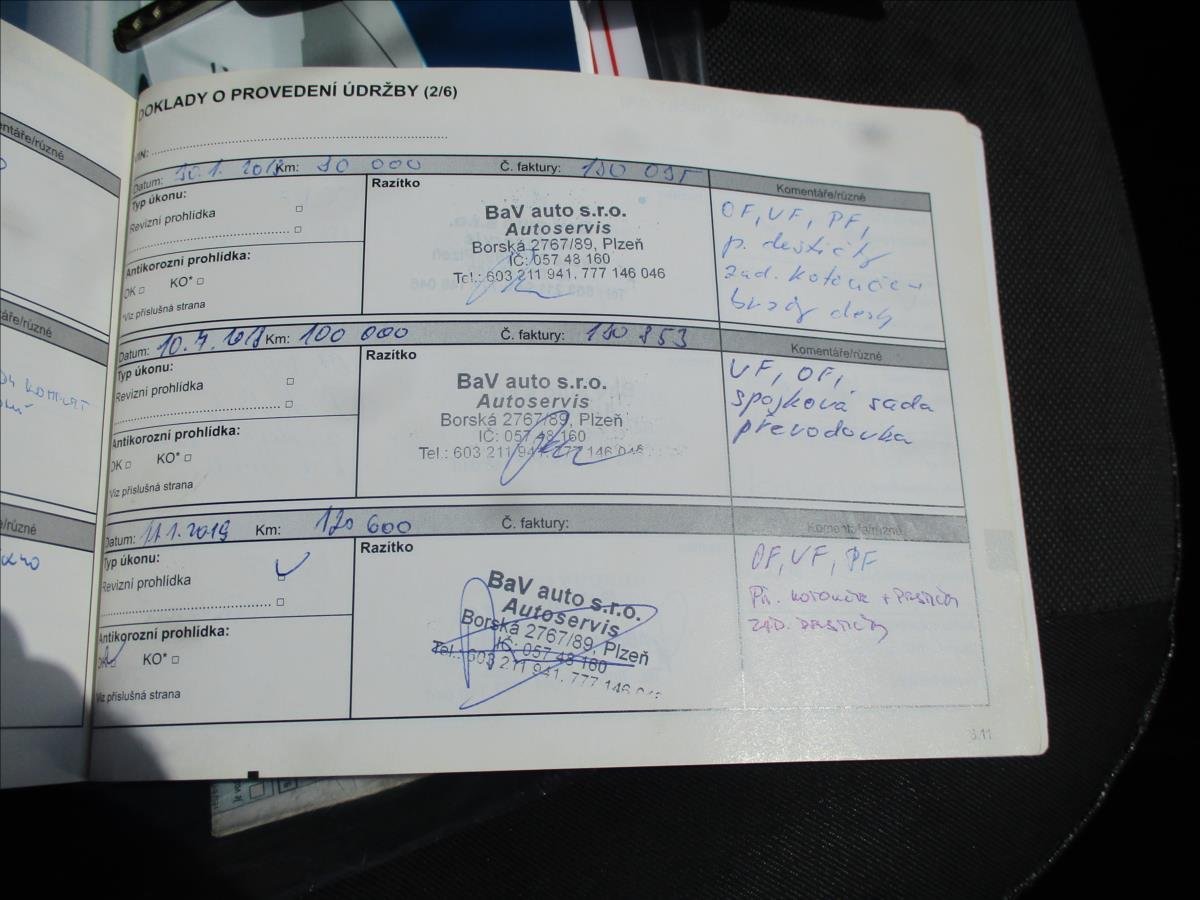 DOKLADY O PROVEDENÍ ÚDRŽBY (2/6)
VIN:
Datum: 30.1.2018 Km: 90 000 Č. faktury: 180 095
Typ úkonu:
Revizní prohlídka
Antikorozní prohlídka:
OK KO*
*Viz příslušná strana
Razítko
BaV auto s.r.o.
Autoservis
Borská 2767/89, Plzeň
IČ: 057 48 160
Tel.: 603 211 941, 777 146 046
Komentáře/různé
OF, VF, PF,
p. destičky
zad. kotouče +
brzdy desky
Datum: 10.7.2018 Km: 100 000 Č. faktury: 180 853
Typ úkonu:
Revizní prohlídka
Antikorozní prohlídka:
OK KO*
Viz příslušná strana
Razítko
BaV auto s.r.o.
Autoservis
Borská 2767/89, Plzeň
IČ: 057 48 160
Tel.: 603 211 941, 777 146 046
Komentáře/různé
VF, OF,
spojková sada
převodovka
Datum: 11.1.2019 Km: 120 600 Č. faktury:
Typ úkonu:
Revizní prohlídka
Antikorozní prohlídka:
OK KO*
Viz příslušná strana
Razítko
BaV auto s.r.o.
Autoservis
Borská 2767/89, Plzeň
IČ: 057 48 160
Tel.: 603 211 941, 777 146 046
Komentáře/různé
OF, VF, PF
Př. kotouče + destičky
zad. destičky